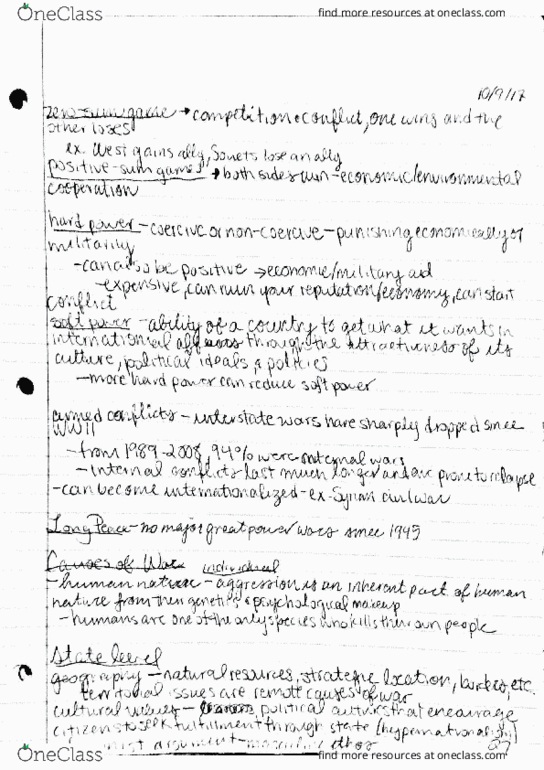 OneClass
find more resources at oneclass.com
10/9/17
zero-sum game → competition & conflict, one wins and the
other loses
ex. West gains ally, Soviets lose an ally
positive-sum games → both sides win - economic/environmental
cooperation
hard power - coercive or non-coercive - punishing economically or
militarily
- can also be positive → economic/military aid
- expensive, can ruin your reputation/economy, can start
conflict
soft power - ability of a country to get what it wants in
international affairs through the attractiveness of its
culture, political ideals & policies
- more hard power can reduce soft power
armed conflicts - interstate wars have sharply dropped since
WWII
- from 1989-2008, 94% were internal wars
- internal conflicts last much longer and are prone to relapse
- can become internationalized - ex-Syrian civil war
Long Peace - no major great power wars since 1945
Causes of War individual
- human nature - aggression is an inherent part of human
nature from their genetic & psychological makeup
- humans are one of the only species who kills their own people
State level
geography - natural resources, strategic location, borders, etc.
territorial issues are remote causes of war
cultural values - political cultures that encourage
citizens to seek fulfillment through state (hypernationalism)
argument - masculine ethos
OneClass
find more resources at oneclass.com